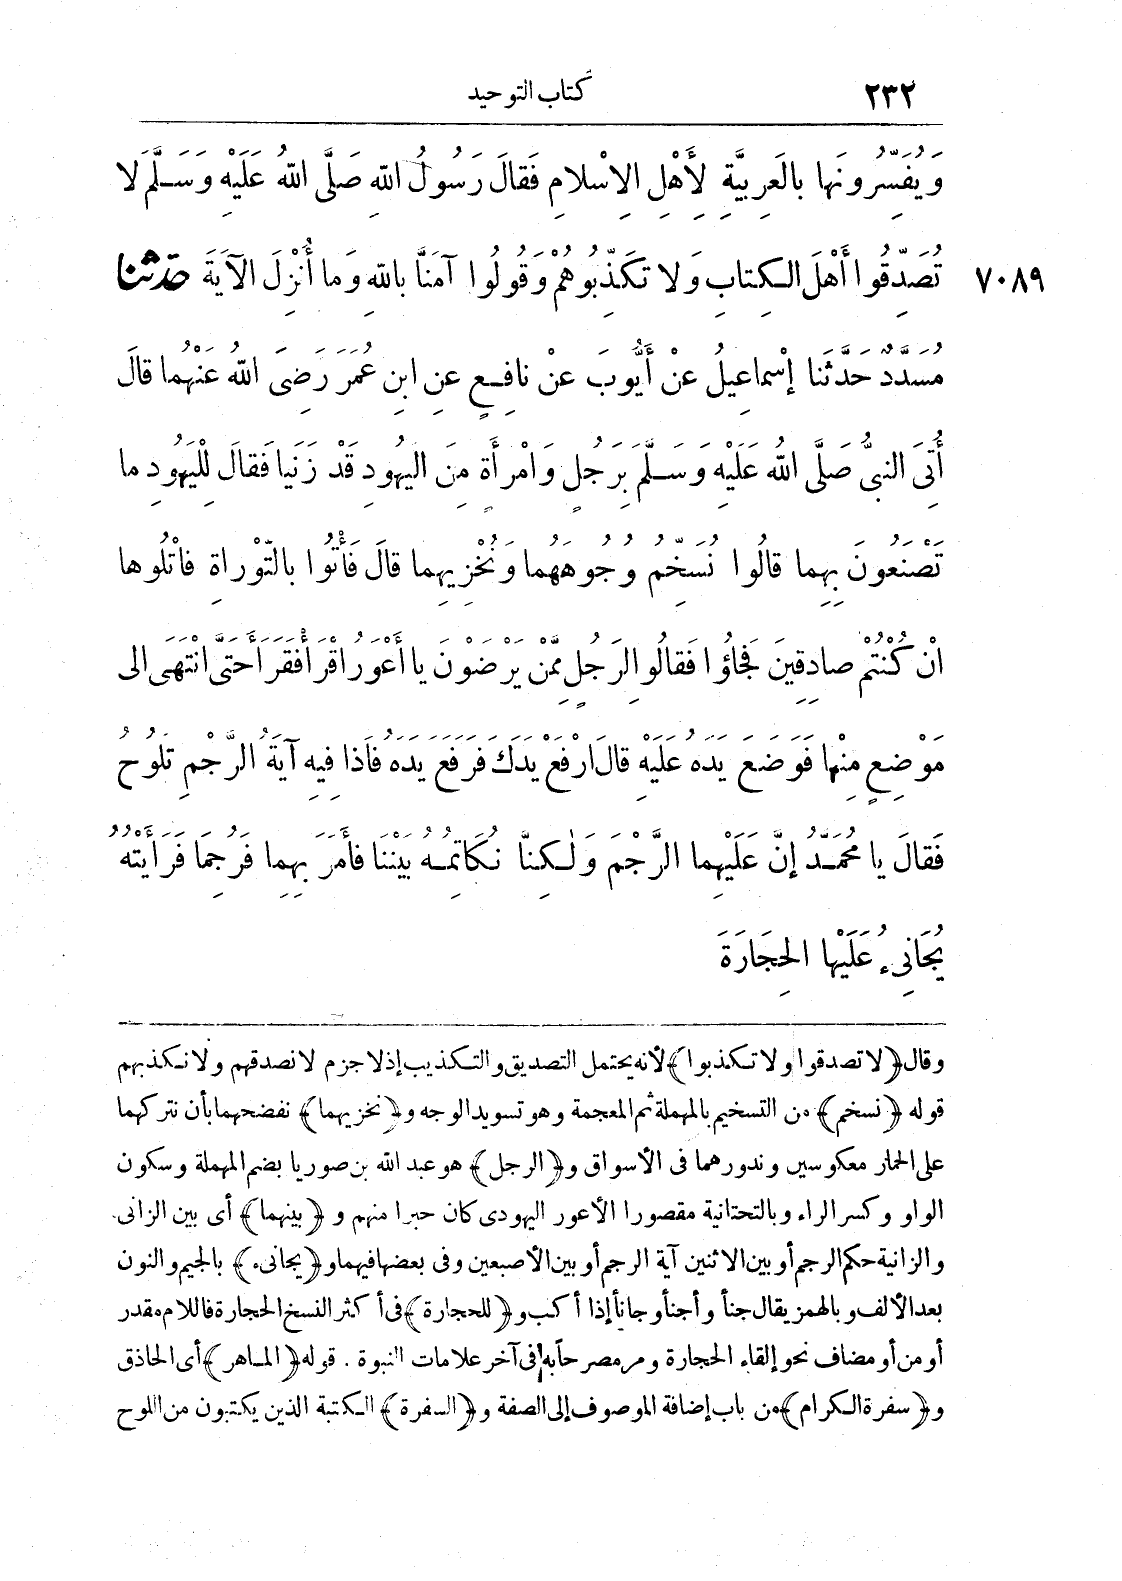 ٢٣٢ كتاب التوحيد
وَيُفَسِّرُونَها بالعَرِبيَّةِ لِأَهْلِ الِاسْلامِ فَقالَ رَسُولُ اللهِ صَلَّى اللهُ عَلَيْهِ وَسَلَّمَ لا
تُصَدِّقُوا أَهْلَ الكِتابِ وَلا تكَذِّبُوهُمْ وَقُولُوا آمَنَّا باللهِ وَما أُنْزِلَ الآيَةَ حدثنا ٧٠٨٩
مُسَدَّدٌ حَدَّثَنا إسْماعِيلُ عنْ أَيُّوبَ عنْ نافِعٍ عنِ ابنِ عُمَرَ رَضِىَ اللهُ عنْهُما قالَ
أُتِىَ النبىُّ صَلَّى اللهُ عَلَيْهِ وَسَلَّمَ بِرَجُلٍ وَامْرأَةٍ مِنَ اليهُودِ قَدْ زَنَيا فَقالَ لِلْيَهُودِ ما
تَصْنَعُونَ بِهِما قالُوا نُسَخِّمُ وُجُوهَهُما وَنُخْزِيهِما قالَ فَأْتُوا بالتَّوْراةِ فاتْلُوها
انْ كُنْتُمْ صادِقِينَ فَجاؤُا فَقالُوا لِرَجُلٍ مِمَّنْ يَرْضَوْنَ يا أَعْوَرُ اقْرَأْ فَقَرَأَ حتَّى انْتَهَى الى
مَوْضِعٍ مِنْها فَوَضَعَ يَدَهُ عَلَيْهِ قالَ ارْفَعْ يَدَكَ فَرَفَعَ يَدَهُ فَاذا فِيهِ آيَةُ الرَّجْمِ تَلُوحُ
فَقالَ يا مُحَمَّدُ إنَّ عَلَيْهِما الرَّجْمَ وَلٰكِنَّا نُكَاتِمُهُ بَيْنَنا فأَمَرَ بِهِما فَرُجِمَا فَرَأَيْتُهُ
يُجَانِىءُ عَلَيْها الحِجَارَةَ
وقال ﴿لا تصدقوا ولا تكذبوا﴾ لأنه يحتمل التصديق والتكذيب إذ لا جزم لا نصدقهم ولا نكذبهم
قوله ﴿نسخم﴾ من التسخيم بالمهملة ثم المعجمة وهو تسويد الوجه و﴿نخزيهما﴾ نفضحهما بأن نتركهما
على الحمار معكوسين وندورهما فى الأسواق و﴿الرجل﴾ هو عبد الله بن صوريا بضم المهملة وسكون
الواو وكسر الراء وبالتحتانية مقصورا الأعور اليهودى كان حبرا منهم و﴿بينهما﴾ أى بين الزانى
والزانية حكم الرجم أو بين الاثنين آية الرجم أو بين الأصبعين وفى بعضها فيهما و﴿يجانىء﴾ بالجيم والنون
بعد الألف وبالهمز يقال جنأ وأجنأ وجانأ إذا أكب و﴿للحجارة﴾ فى أكثر النسخ الحجارة فاللام مقدر
أو من أو مضاف نحو إلقاء الحجارة ومر مصرحا به فى آخر علامات النبوة . قوله ﴿الماهر﴾ أى الحاذق
و﴿سفرة الكرام﴾ من باب إضافة الموصوف إلى الصفة و﴿السفرة﴾ الكتبة الذين يكتبون من اللوح